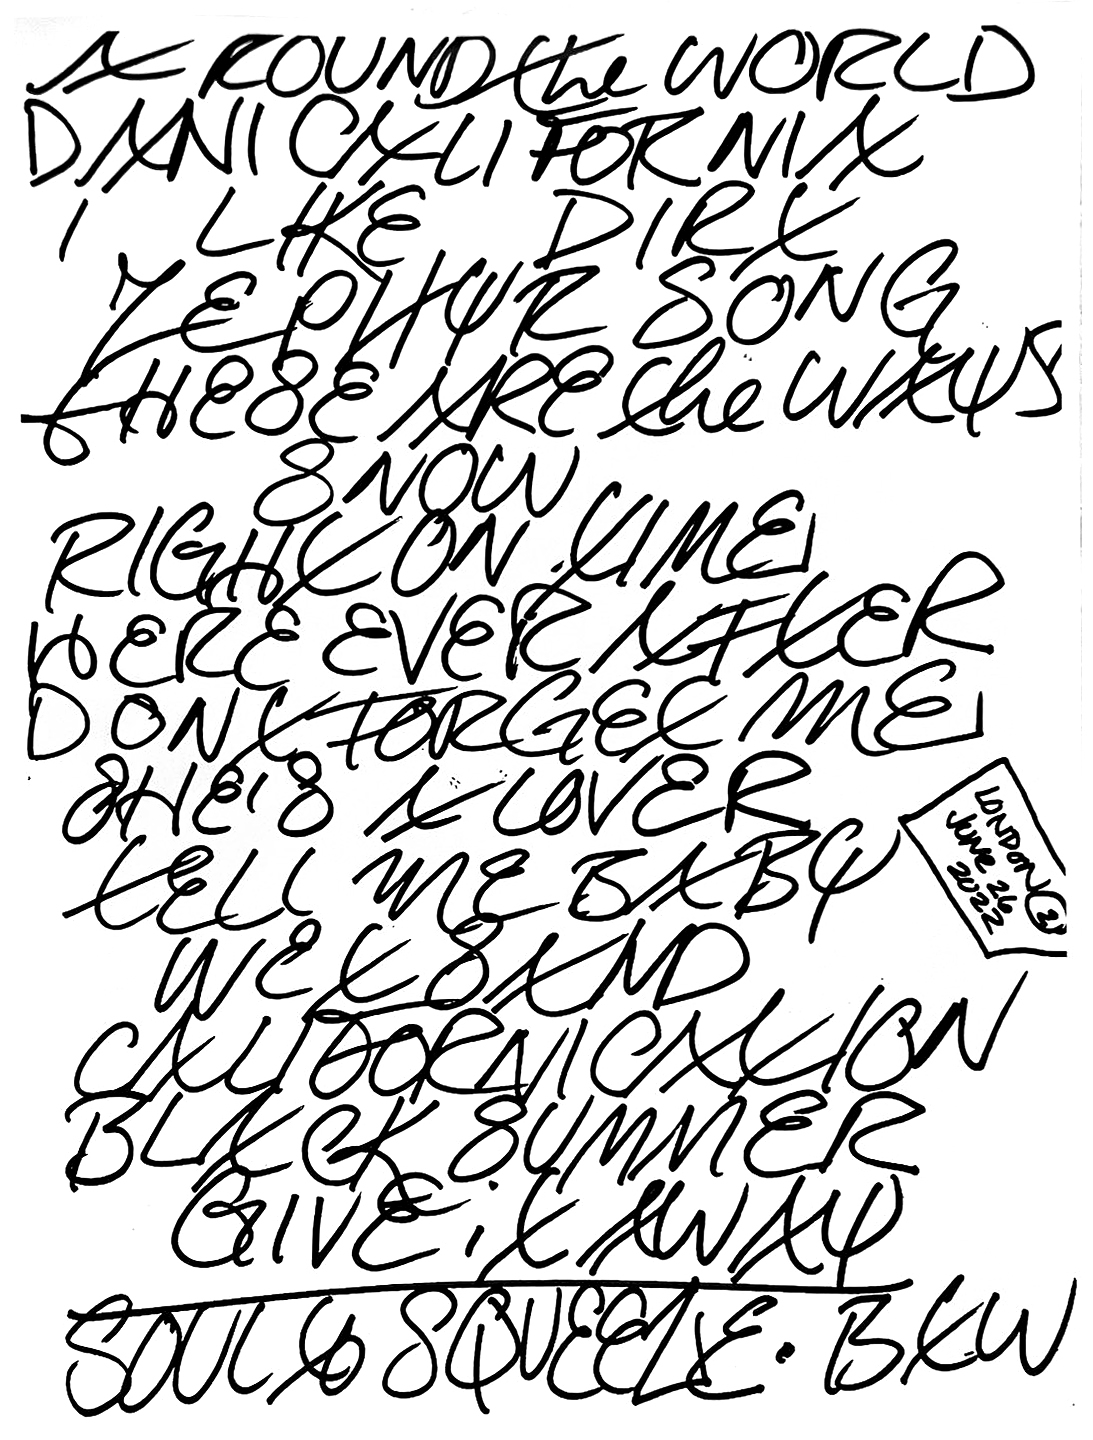 AROUND the WORLD
DANI CALIFORNIA
I LIKE DIRT
ZEPHYR SONG
THESE ARE the WAYS
SNOW
RIGHT ON TIME
HERE EVER AFTER
DONT FORGET ME
SHE'S A LOVER
TELL ME BABY
LONDON
JUNE 26
2022 2
WET SAND
CALIFORNICATION
BLACK SUMMER
GIVE iT AWAY
SOUL to SQUEEZE · BTW